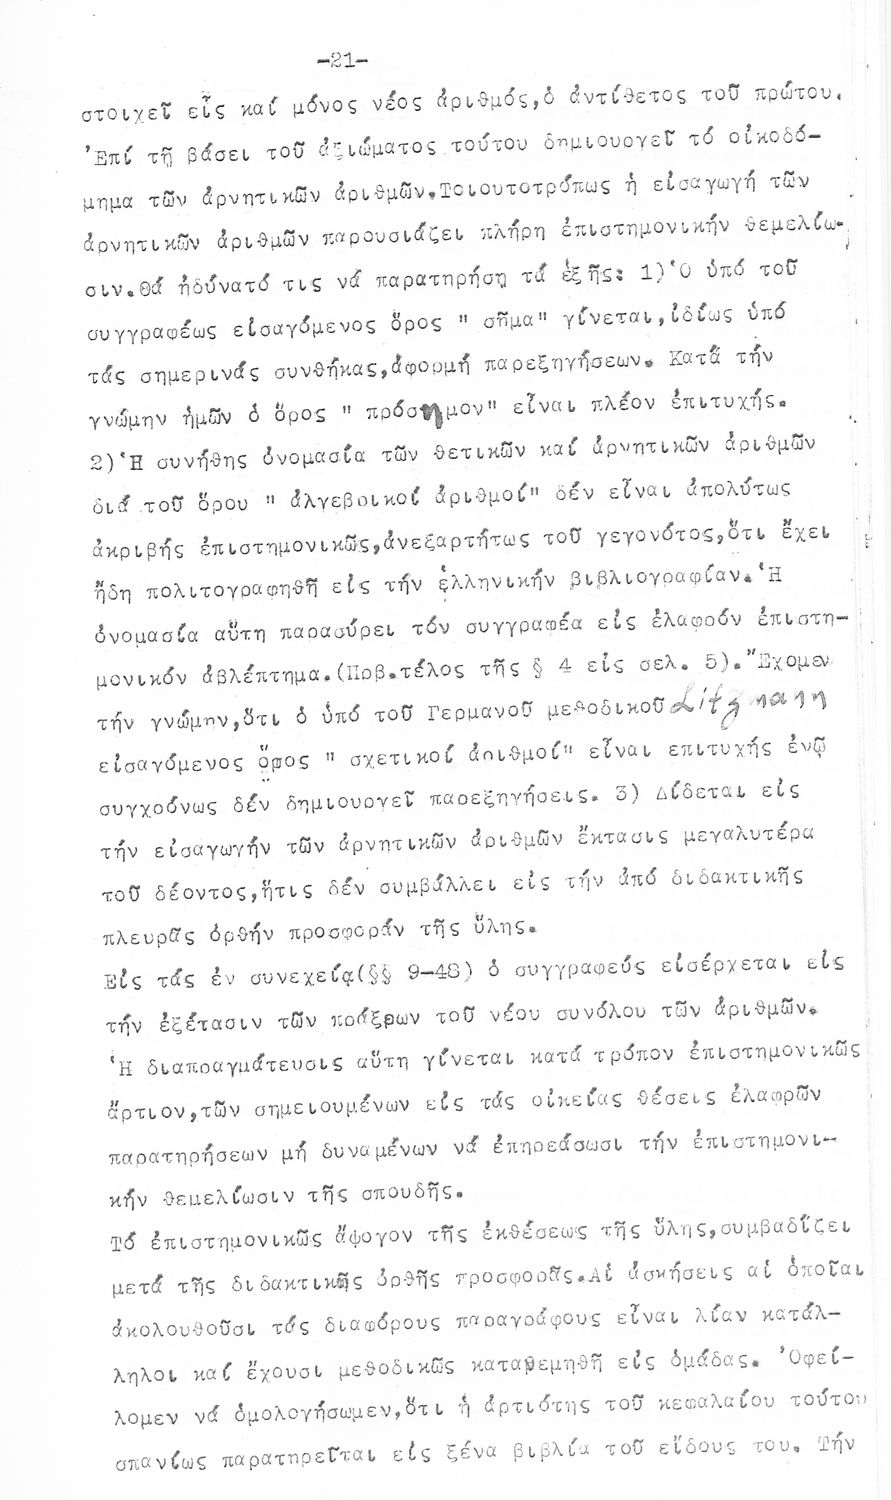 -21-
στοιχεῖ εἷς καί μόνος νέος ἀριθμός,ὁ ἀντίθετος τοῦ πρώτου.
Ἐπί τῇ βάσει τοῦ ἀξιώματος τούτου δημιουργεῖ τό οἰκοδό-
μημα τῶν ἀρνητικῶν ἀριθμῶν.Τοιουτοτρόπως ἡ εἰσαγωγή τῶν
ἀρνητικῶν ἀριθμῶν παρουσιάζει πλήρη ἐπιστημονικήν θεμελίω-
σιν.Θά ἠδύνατό τις νά παρατηρήσῃ τά ἑξῆς: 1)Ὁ ὑπό τοῦ
συγγραφέως εἰσαγόμενος ὅρος " σῆμα" γίνεται,ἰδίως ὑπό
τάς σημερινάς συνθήκας,ἀφορμή παρεξηγήσεων. Κατά τήν
γνώμην ἡμῶν ὁ ὅρος " πρόσημον" εἶναι πλέον ἐπιτυχής.
2)Ἡ συνήθης ὀνομασία τῶν θετικῶν καί ἀρνητικῶν ἀριθμῶν
διά τοῦ ὅρου " ἀλγεβρικοί ἀριθμοί" δέν εἶναι ἀπολύτως
ἀκριβής ἐπιστημονικῶς,ἀνεξαρτήτως τοῦ γεγονότος,ὅτι ἔχει
ἤδη πολιτογραφηθῆ εἰς τήν ἑλληνικήν βιβλιογραφίαν.Ἡ
ὀνομασία αὕτη παρασύρει τόν συγγραφέα εἰς ἐλαφρόν ἐπιστη-
μονικόν ἀβλέπτημα.(Πρβ.τέλος τῆς § 4 εἰς σελ. 5)."Εχομεν
τήν γνώμην,ὅτι ὁ ὑπό τοῦ Γερμανοῦ μεθοδικοῦ Litzmann
εἰσαγόμενος ὅρος " σχετικοί ἀριθμοί" εἶναι επιτυχής ἐνῷ
συγχρόνως δέν δημιουργεῖ παρεξηγήσεις. 3) Δίδεται εἰς
τήν εἰσαγωγήν τῶν ἀρνητικῶν ἀριθμῶν ἔκτασις μεγαλυτέρα
τοῦ δέοντος,ἥτις δέν συμβάλλει εἰς τήν ἀπό διδακτικῆς
πλευρᾶς ὀρθήν προσφοράν τῆς ὕλης.
Εἰς τάς ἐν συνεχείᾳ(§§ 9-48) ὁ συγγραφεύς εἰσέρχεται εἰς
τήν ἐξέτασιν τῶν πράξεων τοῦ νέου συνόλου τῶν ἀριθμῶν.
Ἡ διαπραγμάτευσις αὕτη γίνεται κατά τρόπον ἐπιστημονικῶς
ἄρτιον,τῶν σημειουμένων εἰς τάς οἰκείας θέσεις ἐλαφρῶν
παρατηρήσεων μή δυναμένων νά ἐπηρεάσωσι τήν ἐπιστημονι-
κήν θεμελίωσιν τῆς σπουδῆς.
Τό ἐπιστημονικῶς ἄψογον τῆς ἐκθέσεως τῆς ὕλης,συμβαδίζει
μετά τῆς διδακτικῆς ὀρθῆς προσφορᾶς.Αἱ ἀσκήσεις αἱ ὁποῖαι
ἀκολουθοῦσι τάς διαφόρους παραγράφους εἶναι λίαν κατάλ-
ληλοι καί ἔχουσι μεθοδικῶς κατανεμηθῆ εἰς ὁμάδας. Ὀφεί-
λομεν νά ὁμολογήσωμεν,ὅτι ἡ ἀρτιότης τοῦ κεφαλαίου τούτου
σπανίως παρατηρεῖται εἰς ξένα βιβλία τοῦ εἴδους του. Τήν